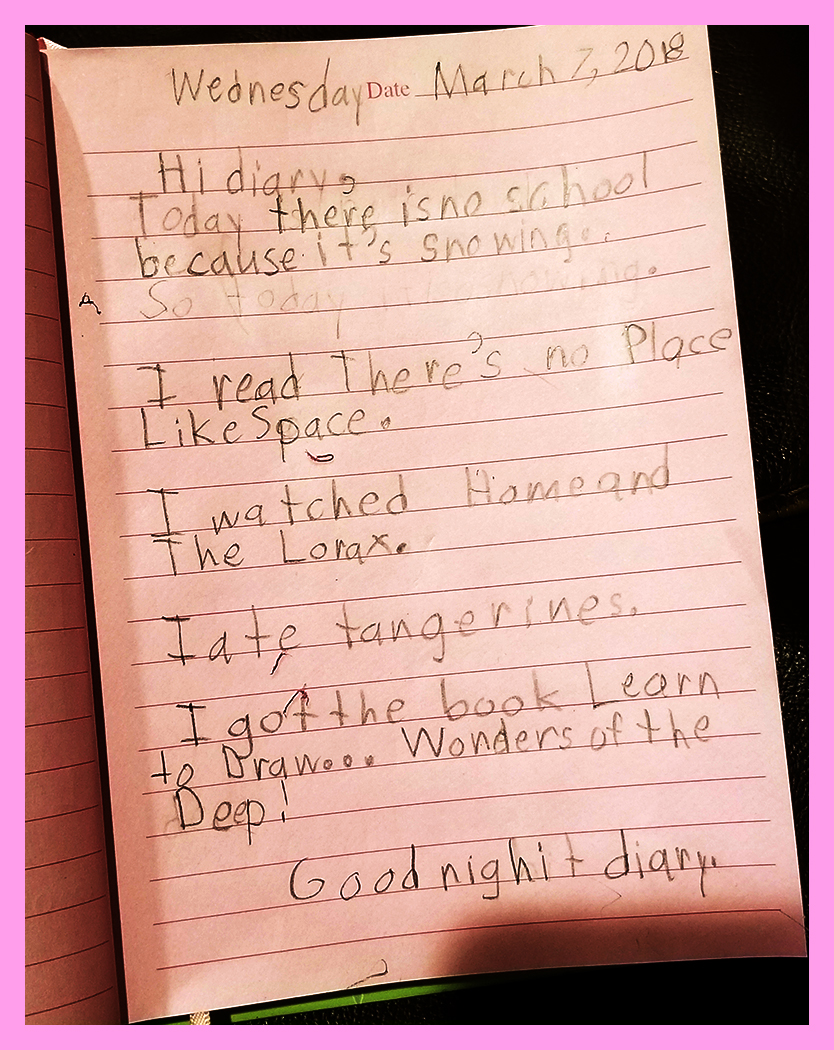 Wednesday Date March 7, 2018
Hi diary,
Today there is no school
because it's snowing..
So today
I read There's no Place
Like Space.
I watched Home and
The Lorax.
I ate tangerines.
I got the book Learn
to Draw... Wonders of the
Deep!
Good nighit diary.